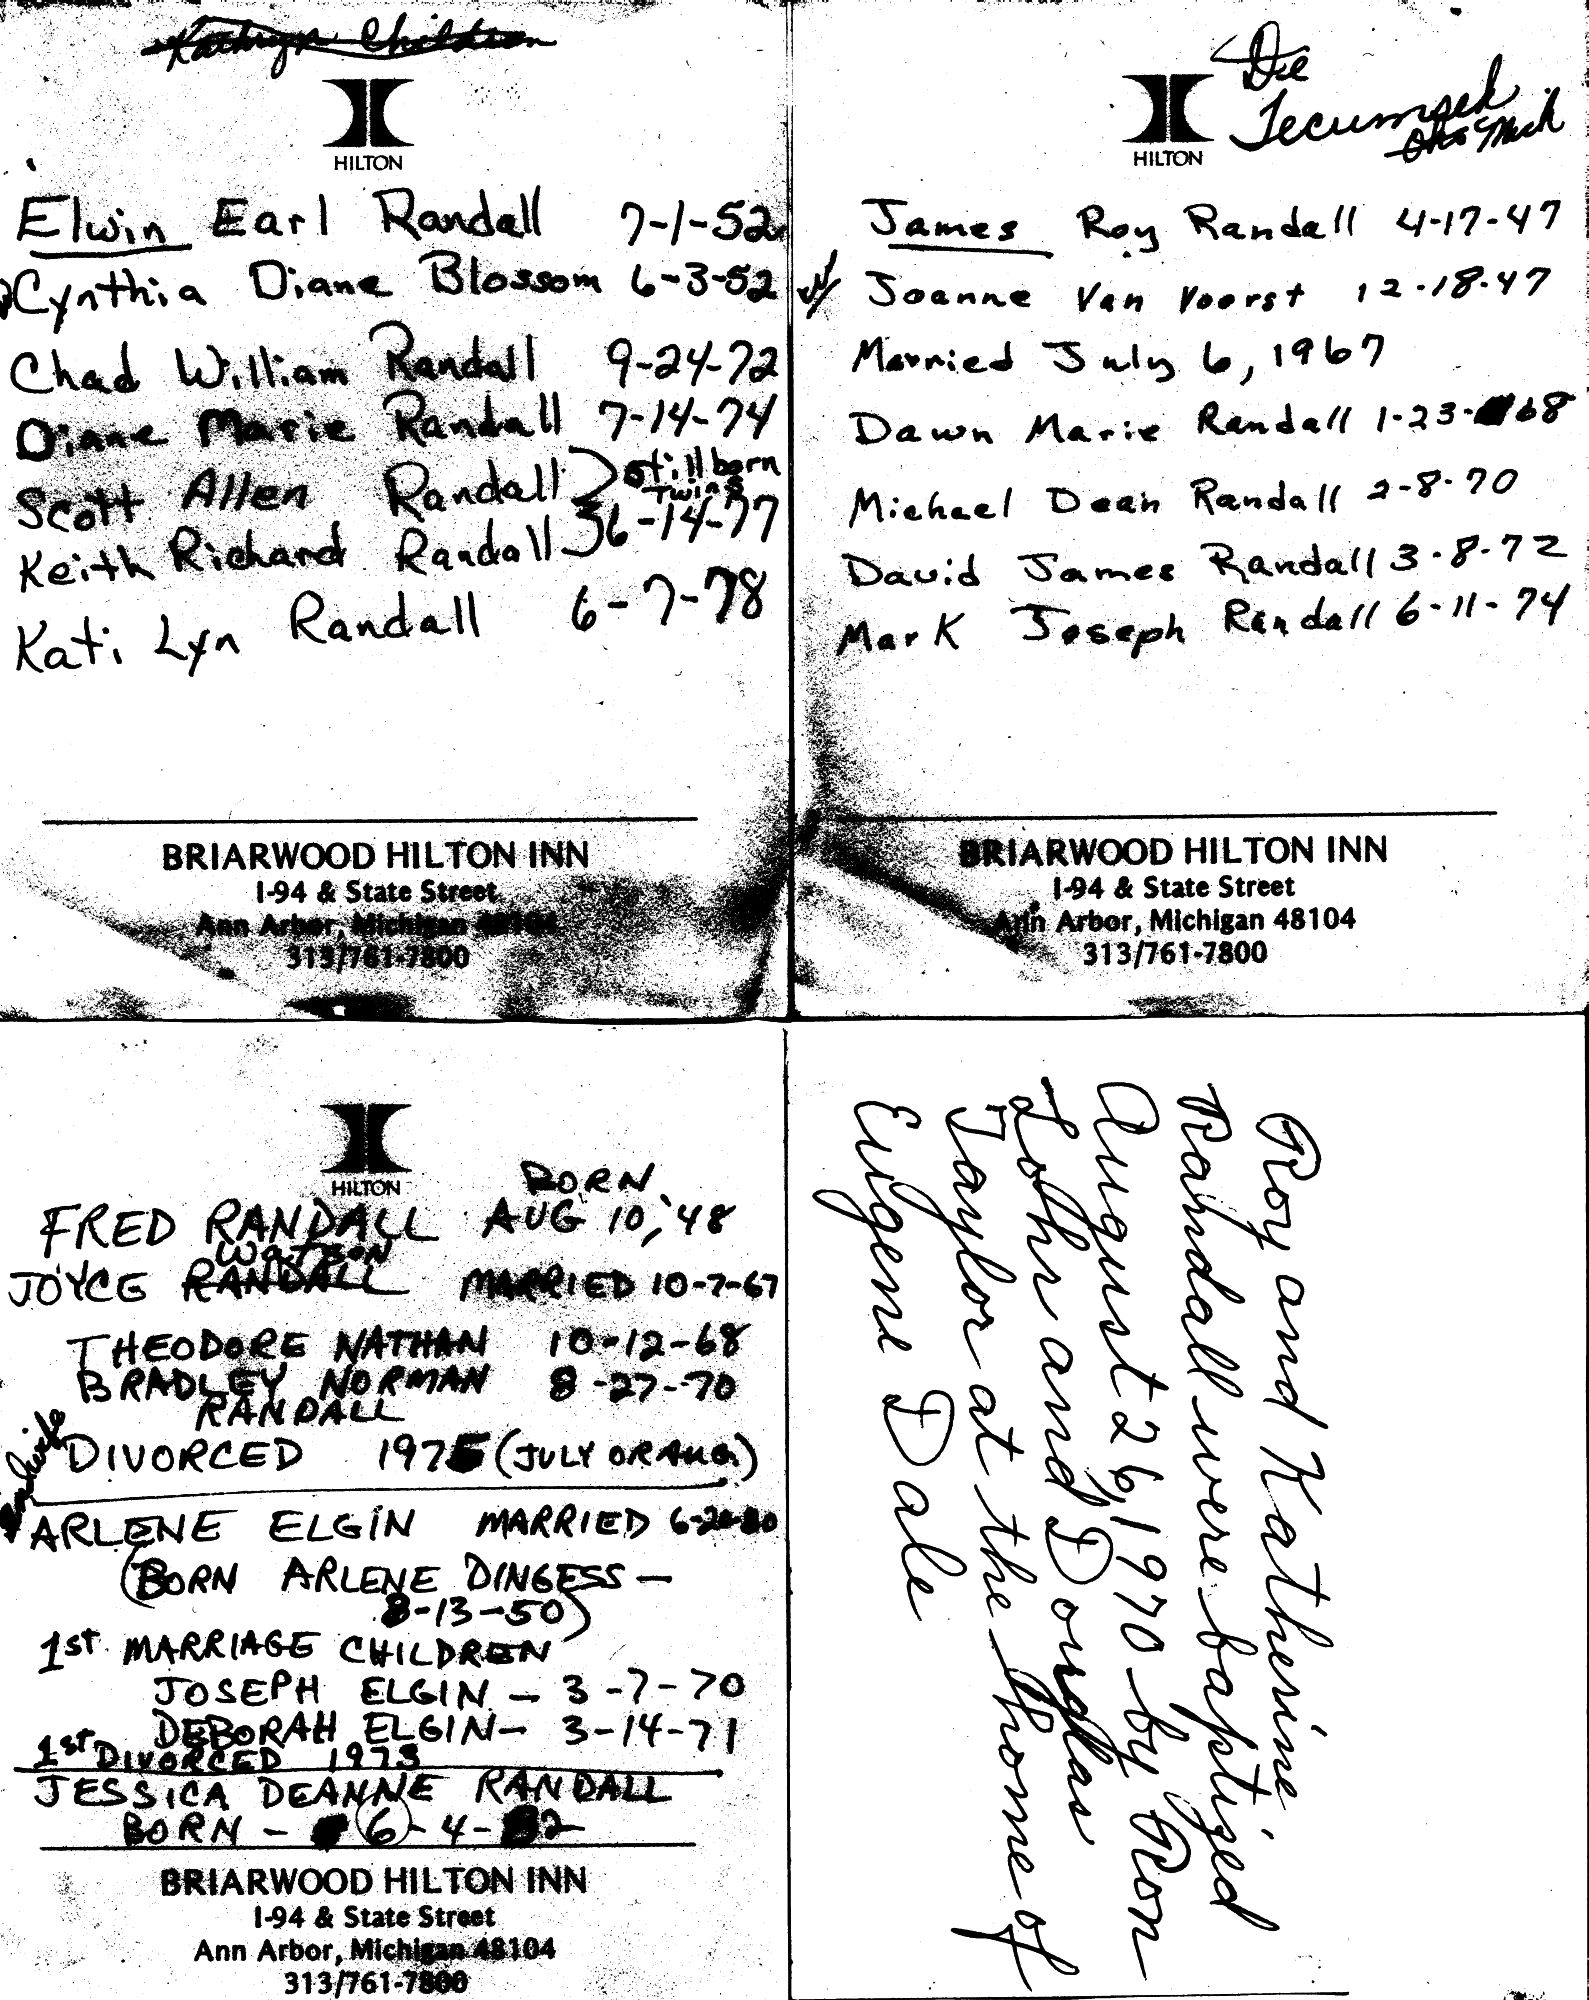 Kathryn Children
HILTON
Elwin Earl Randall 7-1-52
Cynthia Diane Blossom 6-3-52
Chad William Randall 9-24-72
Diane Marie Randall 7-14-74
Scott Allen Randall stillborn
Twins
Keith Richard Randall 6-14-77
Kati Lyn Randall 6-7-78
BRIARWOOD HILTON INN
I-94 & State Street
Ann Arbor, Michigan 48104
313/761-7800
HILTON
Tecumseh
Mich
James Roy Randall 4-17-47
Joanne Van Voorst 12-18-47
Married July 6, 1967
Dawn Marie Randall 1-23-68
Michael Dean Randall 2-8-70
David James Randall 3-8-72
Mark Joseph Randall 6-11-74
BRIARWOOD HILTON INN
I-94 & State Street
Ann Arbor, Michigan 48104
313/761-7800
HILTON
BORN
FRED RANDALL AUG 10, '48
WATSON
JOYCE RANDALL MARRIED 10-7-67
THEODORE NATHAN 10-12-68
BRADLEY NORMAN 8-27-70
RANDALL
DIVORCED 1975 (JULY OR AUG.)
ARLENE ELGIN MARRIED 6-20-80
(BORN ARLENE DINGESS —
8-13-50)
1st MARRIAGE CHILDREN
JOSEPH ELGIN — 3-7-70
DEBORAH ELGIN — 3-14-71
1st DIVORCED 1973
JESSICA DEANNE RANDALL
BORN - 6-4-82
BRIARWOOD HILTON INN
I-94 & State Street
Ann Arbor, Michigan 48104
313/761-7800
Roy and Katherine
Randall were baptized
August 26, 1970 by Ron
Lohr and Douglas
Taylor at the home of
Eugene Dale